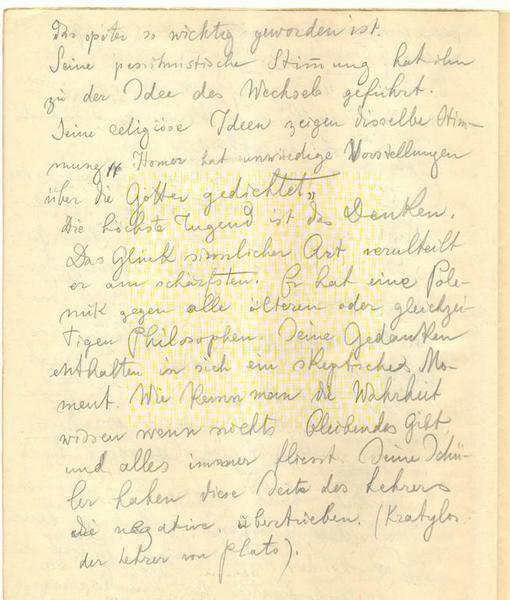 das später so wichtig geworden ist.
Seine pessimistische Stim̄ung hat ihn
zu der Idee des Wechsels geführt.
Seine religiöse Ideen zeigen disselbe Stim-
mung „Homer hat unwürdige Vorstellungen
über die Götter gedichtet„
Die höchste Tugend ist das Denken.
Das Glück sinnlicher Art verulteilt
er am schärfsten. Er hat eine Pole-
mik gegen alle älteren oder gleichzei-
tigen Philosophen. Seine Gedanken
enthalten in sich ein skeptisches Mo-
ment. Wie kann man die Wahrheit
wissen wenn nichts bleibendes gibt
und alles immer fliesst. Seine Schü-
ler haben diese Seite des Lehrers
die negative, übertrieben. (Kratylos
der Lehrer von Plato).